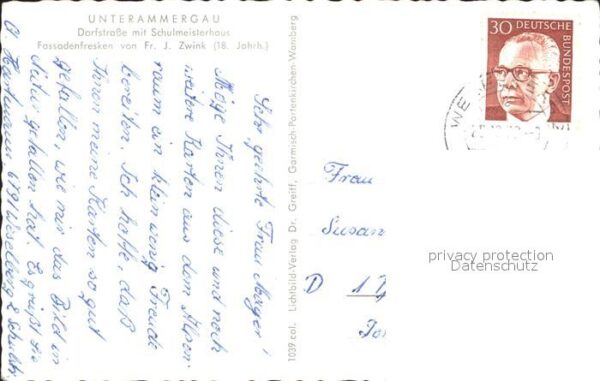 UNTERAMMERGAU
Dorfstraße mit Schulmeisterhaus
Fassadenfresken von Fr. J. Zwink (18. Jahrh.)
Sehr geehrte Frau Mayer!
Möge Ihnen diese und noch
weitere Karten aus dem Alpen-
raum ein klein wenig Freude
bereiten. Ich hoffe, daß
Ihnen meine Karten so gut
gefallen, wie mir das Bild in
Natur gefallen hat. Es grüßt Sie
1039.col. Lichtbild-Verlag Dr. Greiff, Garmisch-Partenkirchen-Wamberg
30 DEUTSCHE
BUNDESPOST
Frau
Susan
D 17
privacy protection
Datenschutz